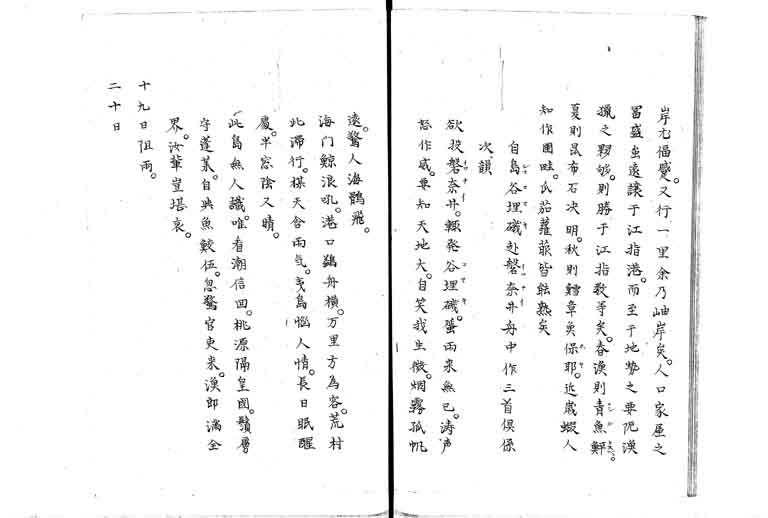 岸尤福盛又行一里余乃岫岸矣人口家屋之
冨盛虽遠譲于江指港而至于地勢之要阨漁
獵之夥够則勝于江指数等矣春漁則青魚鯡
夏則昆布石决明秋則鱈章奠保耶近歳蝦人
知作圃畦瓜茄蘿菔皆能熟矣
自島谷埋磯赴磐奈井舟中作三首俱係
次韻
欲投磐奈井輙発谷埋磯蜑雨来無已涛声
怒作威要知天地大自笑我生微烟霧孤帆
遠驚人海鶻飛
海門鯨浪吼港口鷁舟横万里方為客荒村
此滞行楳天含雨気夷島悩人情長日眠醒
處半窓陰又晴
此島無人識唯看潮信回桃源隔皇国鬚層
守蓬莱自与魚鮫伍忽驚官吏来漁郎満全
界汝輩豈堪哀
十九日阻雨
二十日